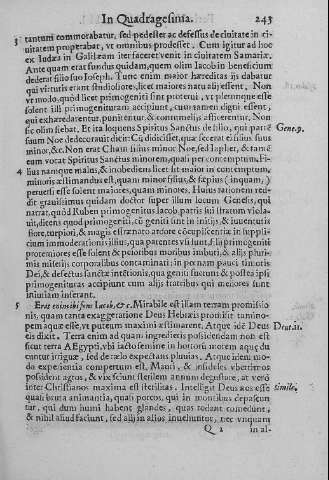 In Quadragesima. 243
3 tantum commorabatur, sed pedester ac defessus de ciuitate in ci-
uitatem properabat, vt omnibus prodesset. Cum igitur ad hoc
ex Iudæa in Galilæam iter faceret venit in ciuitatem Samariæ.
Ante quam erat fundus quidam, quem olim Iacob in beneficium
dederat filio suo Ioseph. Tunc enim maior hæreditas ijs dabatur
qui virtutis erant studiosiores, licet maiores natu alij essent. Non
vt modo, quòd licet primogeniti sint
solent illi primogenituram accipiunt, cum tamen digni essent,
qui exhæredarentur, puniretur, & contumelijs afficerentur. Non
sic olim fiebat. Et ita loquens Spiritus Sanctus de filio, qui patrē
suum Noe dedecorauit dicit: Quæ fecerat ei filius suus Gene.9.
minor, &c. Non erat Cham filius minor Noe, sed Iaphet, & tamē
eum vocat Spiritus Sanctus minorem, quasi per contemptum. Fi-
4 lius namque malus, & inobediens licet sit maior in contemptum,
minoris æstimandus est, quam minor filius, & sæpius (inquam,)
peruersi esse solent maiores, quam minores. Huius rationem red-
dit grauissimus quidam doctor super illum locum Genesis, qui
narrat, quòd Ruben primogenitus Iacob, patris sui stratum viola-
uit, dicens quod primogeniti, cū geniti sint in initijs, & iuuentutis
flore, turpiori, & magis effrænato ardore cōcupiscentiæ in suppli-
cium immoderationis illius, qua parentes vsi sunt. Filij primogeniti
proteruiores esse solent & peioribus moribus imbuti, & alijs pluri-
mis miserijs corporalibus contaminati: in pœnam pauci timoris
Dei, & defectus sanctæ intētionis, qua geniti fuerunt & postea ipsi
primogenituras accipiunt cum alijs fratribus qui meliores sunt
iniuriam inferant.
5 Erat Iacob, &c. Mirabile est illam terram promissio-
nis, quam tanta exaggeratione Deus Hebræis promisit
pem aquæ esse, vt puteum maximi æstimarent. Atque idē Deus Deut.11.
eis dixit. Terra enim ad quam ingredieris possidendam non est
sicut terra AEgypti, vbi iacto semine in hortorū morem aquæ du
cuntur irriguæ, sed de cælo expectans pluuias. Atque idem mo-
do experientia compertum est, Mauri, & infideles vberrimos
possident agros, & vix sciunt sterilem annum degustare, at verò
inter Christianos maxima est sterilitas. Intelligit Deus nos esse Simile.
quasi bruta animantia, quasi porcos, qui in montibus depascun
tur, qui dum humi habent glandes, quas rodant comedunt,
& nihil aliud faciunt, sed alij in alios inuehuntur, nec vnquam
Q 2 in al-